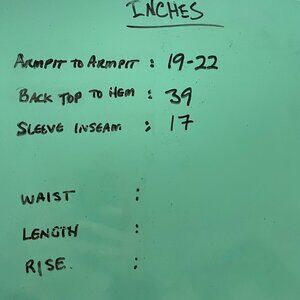 INCHES
ARMPIT TO ARMPIT : 19-22
BACK TOP TO HEM : 39
SLEEVE INSEAM : 17
WAIST :
LENGTH :
RISE. :